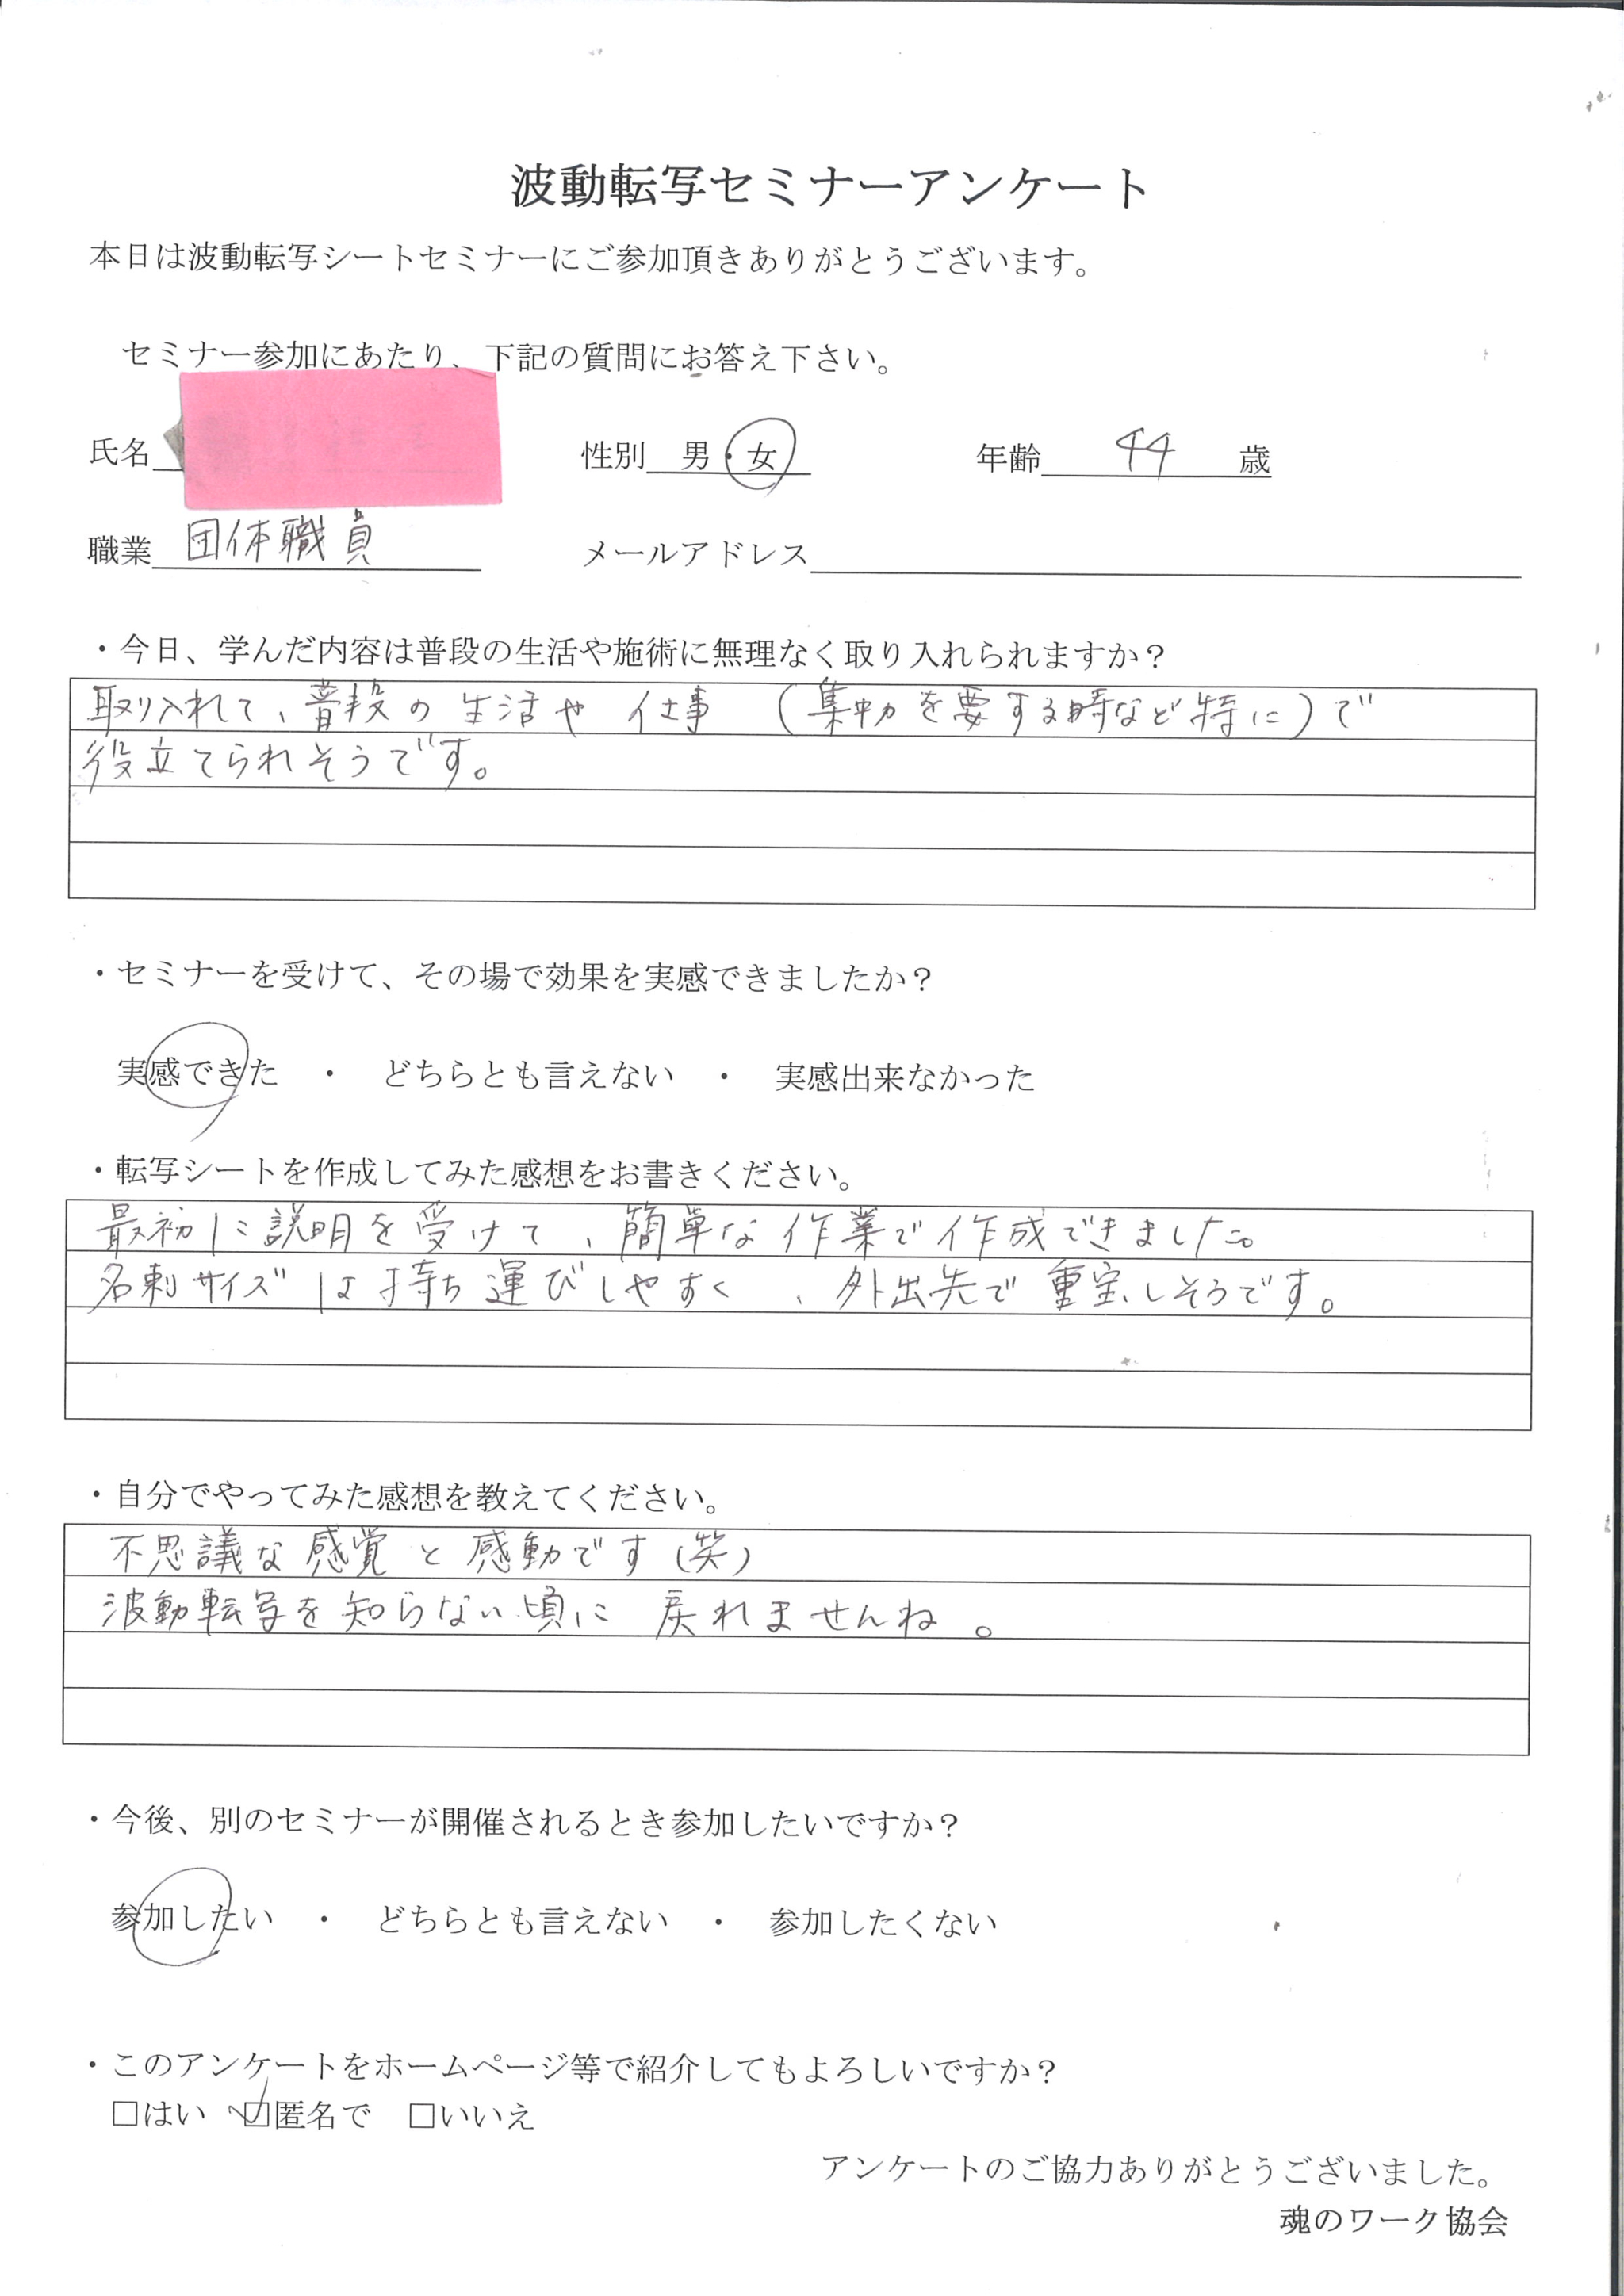 波動転写セミナーアンケート
本日は波動転写シートセミナーにご参加頂きありがとうございます。
セミナー参加にあたり、下記の質問にお答え下さい。
氏名 性別 男・女 年齢 44 歳
職業 団体職員 メールアドレス
・今日、学んだ内容は普段の生活や施術に無理なく取り入れられますか？
取り入れて、普段の生活や仕事（集中力を要する時など特に）で
役立てられそうです。
・セミナーを受けて、その場で効果を実感できましたか？
実感できた ・ どちらとも言えない ・ 実感出来なかった
・転写シートを作成してみた感想をお書きください。
最初に説明を受けて、簡単な作業で作成できました。
名刺サイズは持ち運びしやすく、外出先で重宝しそうです。
・自分でやってみた感想を教えてください。
不思議な感覚と感動です（笑）
波動転写を知らない頃に戻れませんね。
・今後、別のセミナーが開催されるとき参加したいですか？
参加したい ・ どちらとも言えない ・ 参加したくない
・このアンケートをホームページ等で紹介してもよろしいですか？
□はい ☑匿名で □いいえ
アンケートのご協力ありがとうございました。
魂のワーク協会